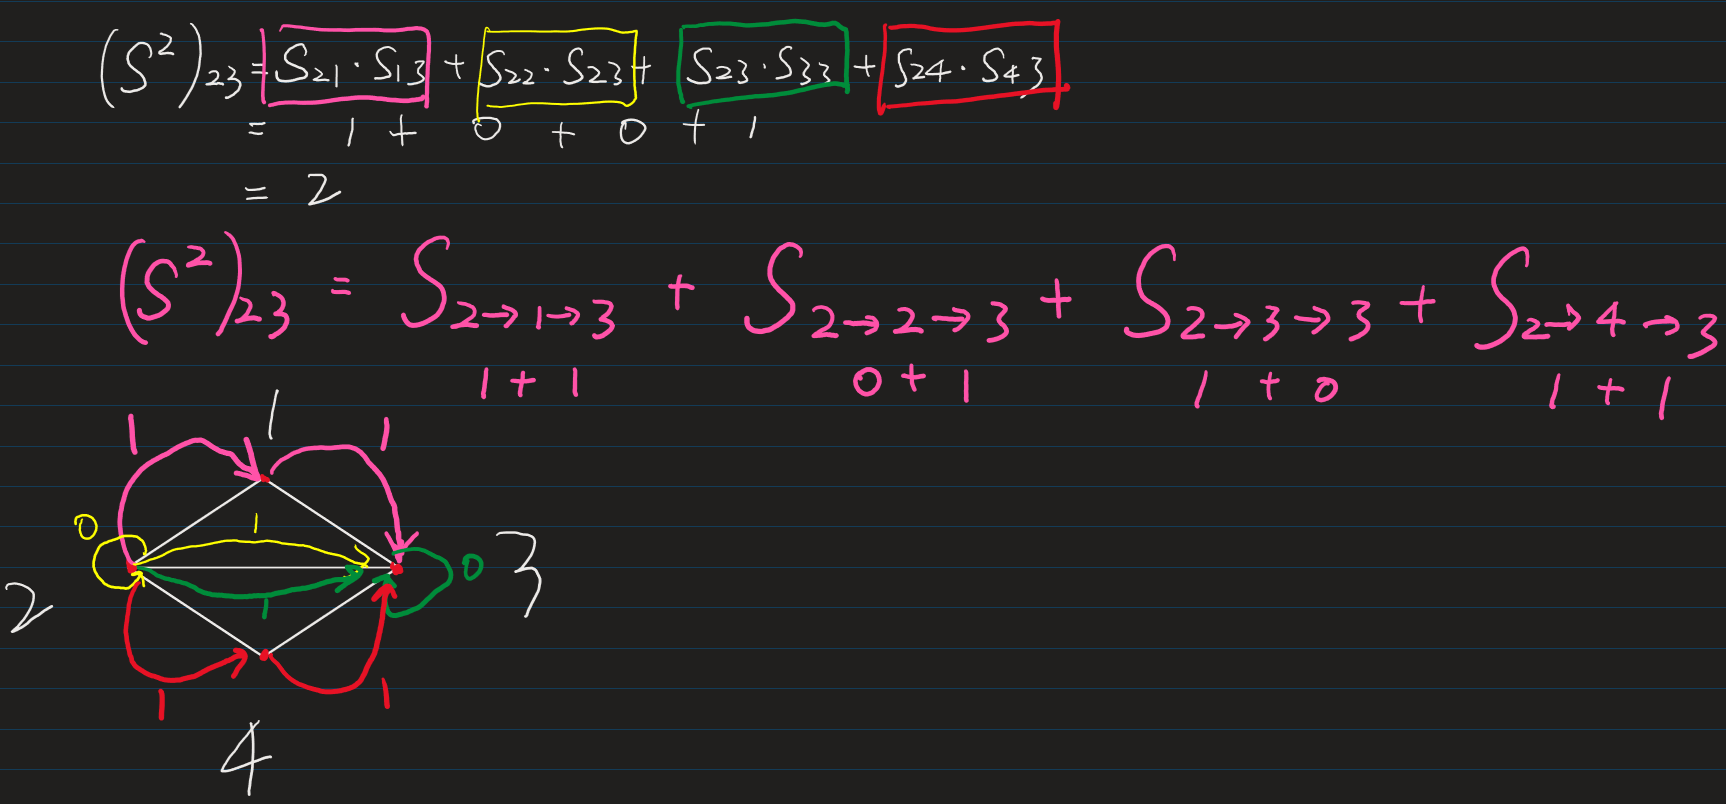 (S²)₂₃ = S₂₁ · S₁₃ + S₂₂ · S₂₃ + S₂₃ · S₃₃ + S₂₄ · S₄₃
= 1 + 0 + 0 + 1
= 2
(S²)₂₃ = S₂→₁→₃ + S₂→₂→₃ + S₂→₃→₃ + S₂→₄→₃
1 + 1 0 + 1 1 + 0 1 + 1
1 1 1
0 1 0 3
2 1
1 1
4